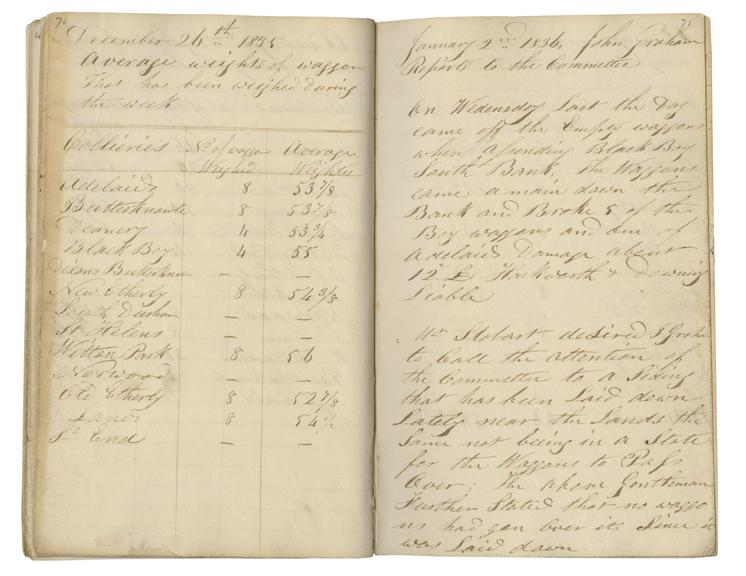 70
December 26th 1835
Average weights of waggons
That has been weighed During
the week
Collieries No of waggons Average
Weighed Weights
Adelaide 8 53 7/8
Butterknowle 8 53 7/8
Deanery 4 53 3/4
Black Boy 4 55
Dixons Butterknowle — —
New Etherly 8 54 3/8
South Durham — —
St Helens — —
Witton Park 8 56
Norwood — —
Old Etherly 8 52 7/8
Lands 8 54 1/2
St End — —
71
January 2nd 1836, John Graham
Reports to the Committee
On Wedensday last the Dog
came off the Empty waggons
when assending Black Boy
South Bank, The Waggons
came a main down the
Bank and Broke 5 of the
Boy waggons and one of
Adelaids Damage about
12 £ Hackworth & Downing
Liable
Mr Stobart desired J Graham
to Call the attention of
the Committee to a Siding
that has been Laid down
Lately near the Lands the
Same not beeing in a State
for the Waggons to Pass
Over; The above Gentleman
Further Stated that no waggo
ns had gon Over it Since it
was Laid down